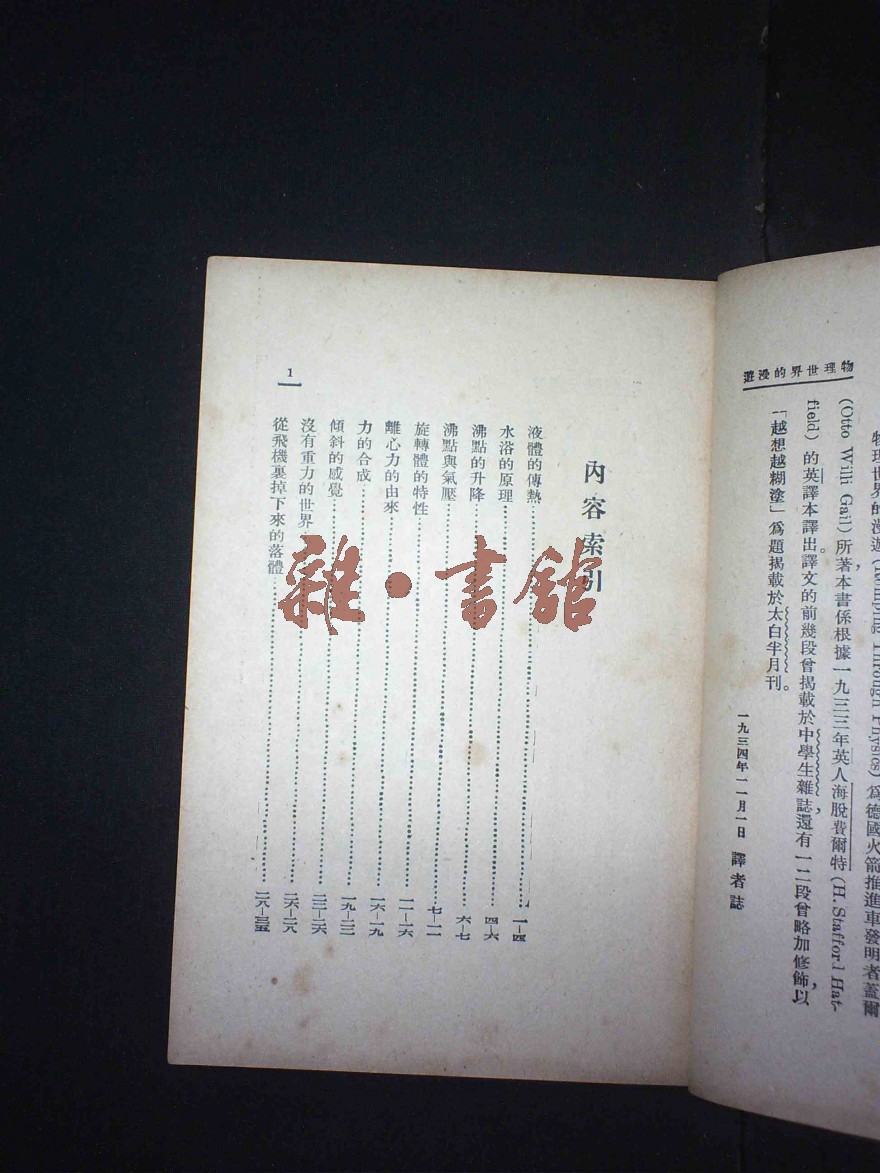 物理世界的漫遊
物理世界的漫遊(Romping Through Physics)爲德國火箭推進車發明者蓋爾
(Otto Willi Gail)所著,本書係根據一九三三年英人海脫費爾特(H. Stafford Hat-
field)的英譯本譯出。譯文的前幾段曾揭載於中學生雜誌,還有一二段曾略加修飾,以
「越想越糊塗」爲題揭載於太白半月刊。
一九三四年一一月一日 譯者誌
內容索引
液體的傳熱……一—四
水浴的原理……四—六
沸點的升降……六—七
沸點與氣壓……七—一一
旋轉體的特性……一一—一六
離心力的由來……一六—一九
力的合成……一九—二二
傾斜的感覺……二二—二六
沒有重力的世界……二六—二八
從飛機裏掉下來的落體……二八—三五
1
雜·書舘